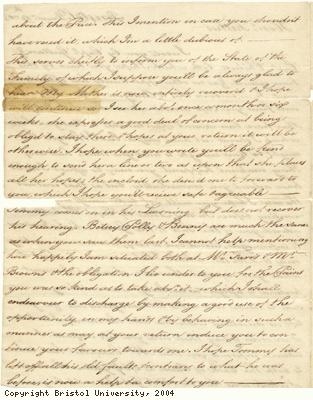 about the Pier this I mention in case you shouldn't
have rec'd it, which I'm a little dubious of
This serves chiefly to inform you of the State of the
Family of which I suppose you'll be always glad to
hear My Mother is now entirely recover'd & I hope
will continue so I see her abt once a month or six
weeks, she expresses a good deal of concern at being
oblig'd to stay there I hope at your return it will be
otherwise I hope when you write you'll be kind
enough to send her a line or two as upon that she places
all her hopes, the enclos'd she desired me to forward to
you which I hope you'll receive safe & agreeable
Tommy comes on in his Learning but does not recover
his hearing. Betsey Polly & Benny are much the same
as when you saw them last, I cannot help mentioning
how happily I am situated both at Mr & Mr
Brown's & the obligation I lie under to you for the Pains
you was so kind as to take abo.t it which I shall
endeavour to discharge by making a good use of the
opportunity in my hands & by behaving in such a
manner as may at your return induce you to con
tinue your favours towards me. I hope Tommy has
left off all his old faults & contrary to what he was
before is now a help & comfort to you
Copyright Bristol University, 2004